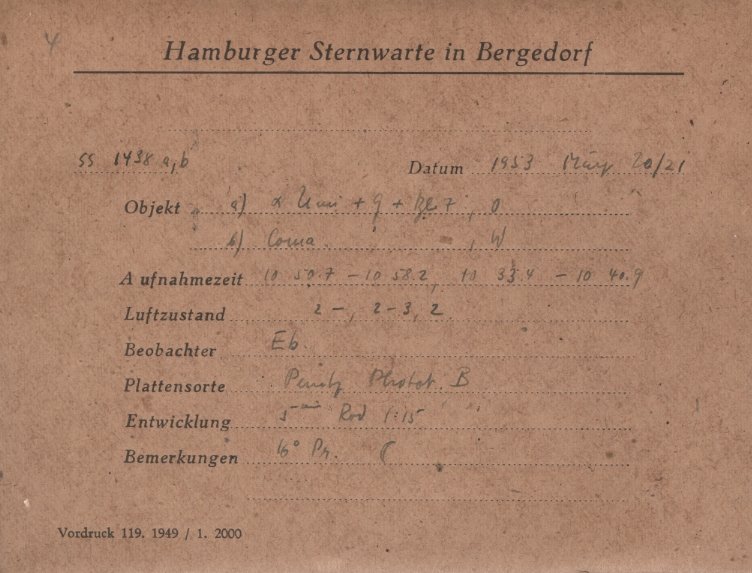 4
Hamburger Sternwarte in Bergedorf
SS 1438 a,b Datum 1953 März 20/21
Objekt a) α Umi + 9 +
b) Coma , W
Aufnahmezeit 10 50.7 – 10 58.2, 10 33.4 – 10 40.9
Luftzustand 2 –, 2 – 3, 2
Beobachter Eb.
Plattensorte Perutz B
Entwicklung 5 min Rod 1:15
Bemerkungen 16° Pr. ☾
Vordruck 119. 1949 / 1. 2000